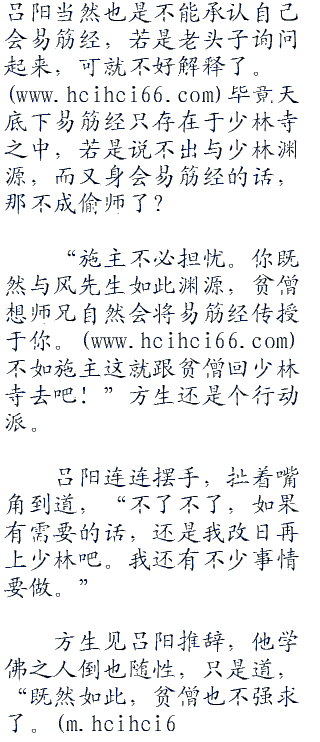 吕阳当然也是不能承认自己
会易筋经，若是老头子询问
起来，可就不好解释了。
(www.hcihci66.com)毕竟天
底下易筋经只存在于少林寺
之中，若是说不出与少林渊
源，而又身会易筋经的话，
那不成偷师了？
“施主不必担忧。你既
然与风先生如此渊源，贫僧
想师兄自然会将易筋经传授
于你。(www.hcihci66.com)
不如施主这就跟贫僧回少林
寺去吧！”方生还是个行动
派。
吕阳连连摆手，扯着嘴
角到道，“不了不了，如果
有需要的话，还是我改日再
上少林吧。我还有不少事情
要做。”
方生见吕阳推辞，他学
佛之人倒也随性，只是道，
“既然如此，贫僧也不强求
了。(m.hcihci6